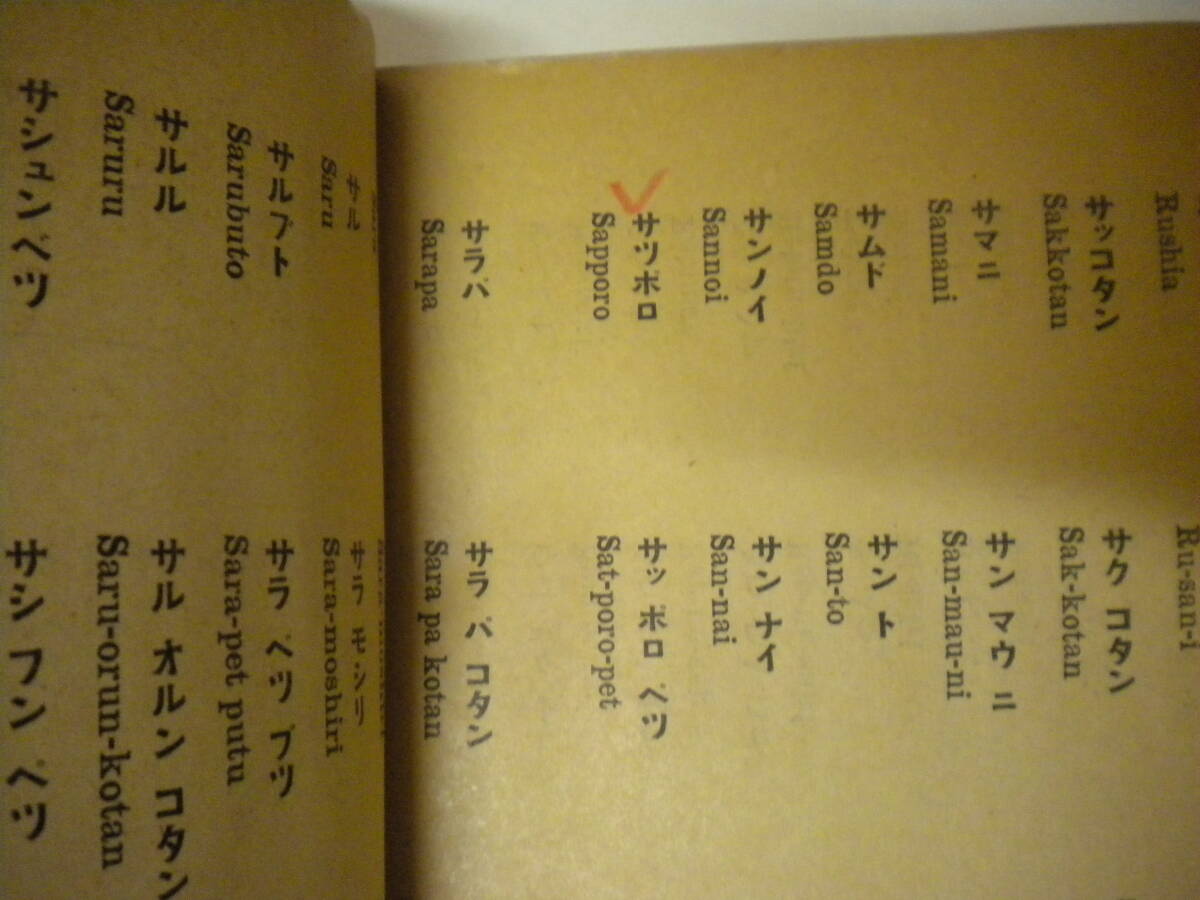 Rushia Ru-san-i
サッコタン サク コタン
Sakkotan Sak-kotan
サマニ サン マウ ニ
Samani San-mau-ni
サムド サン ト
Samdo San-to
サンノイ サン ナイ
Sannoi San-nai
サツポロ サッ ポロ ペッ
Sapporo Sat-poro-pet
サラパ サラ パ コタン
Sarapa Sara pa kotan
サル サラ モシリ
Saru Sara-moshiri
サルブト サラ ペッ プツ
Sarubuto Sara-pet putu
サルル サル オルン コタン
Saruru Saru-orun-kotan
サシュンベツ サシ フン ペツ